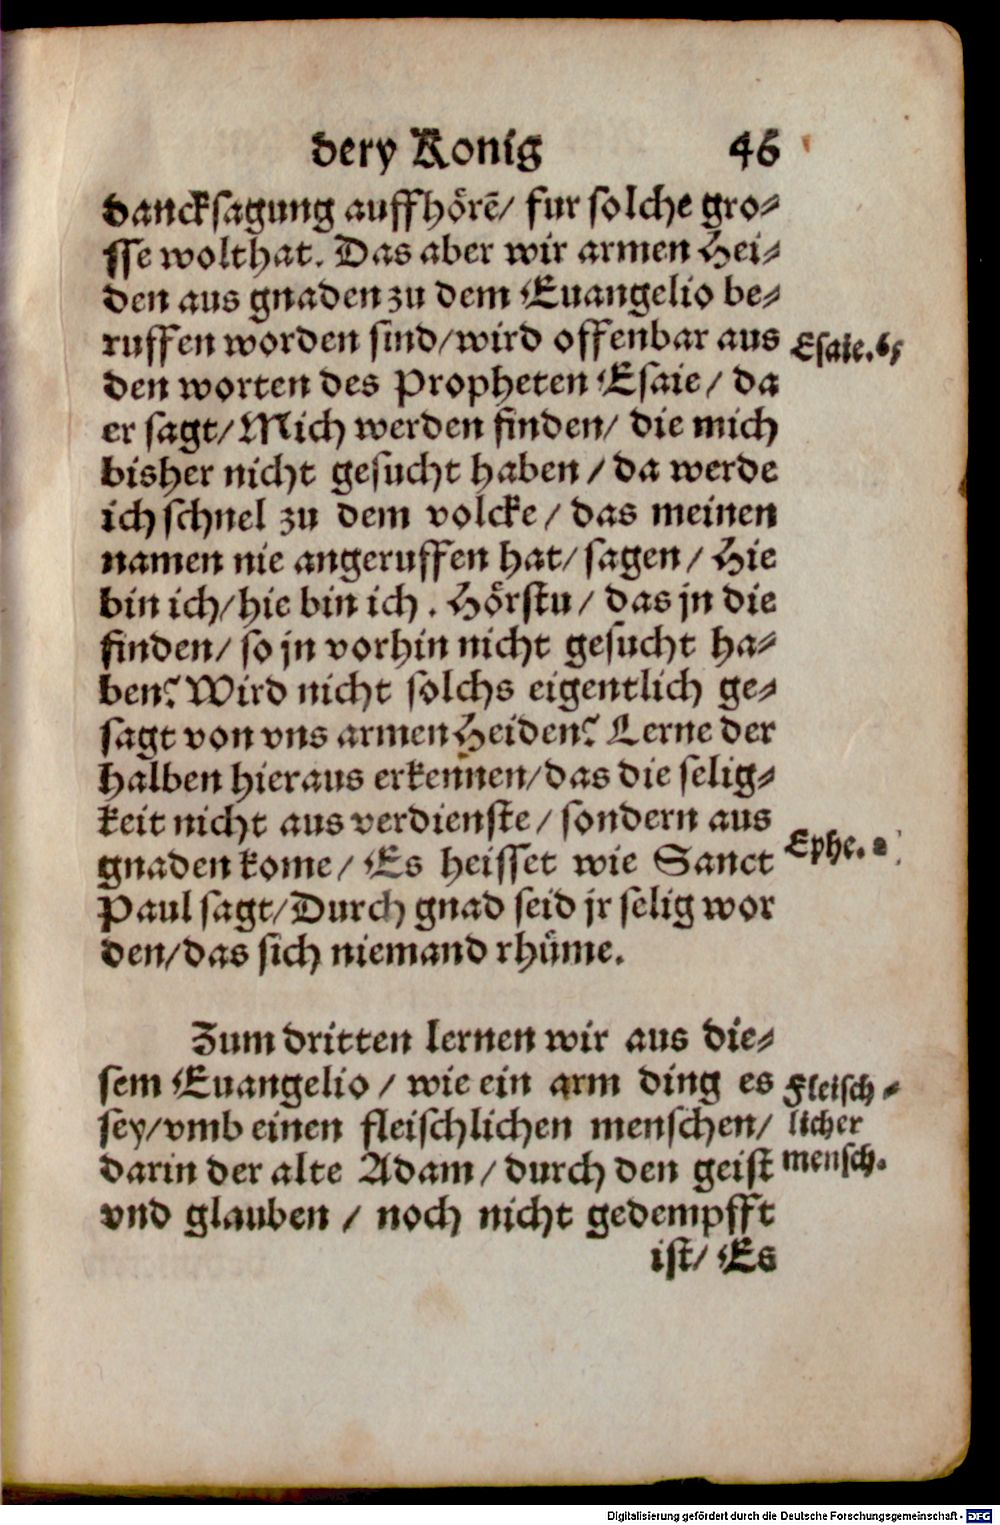 dery Konig 46
dancksagung auffhörē/ fur solche gro⸗
sse wolthat. Das aber wir armen Hei⸗
den aus gnaden zu dem Euangelio be⸗
ruffen worden sind/wird offenbar aus
Esaie. 65
den worten des Propheten Esaie/ da
er sagt/Mich werden finden/ die mich
bisher nicht gesucht haben/da werde
ich schnel zu dem volcke/ das meinen
namen nie angeruffen hat/sagen/Hie
bin ich/hie bin ich. Hörstu/ das jn die
finden/ so jn vorhin nicht gesucht ha⸗
ben? Wird nicht solchs eigentlich ge⸗
sagt von vns armen Heiden? Lerne der
halben hieraus erkennen/das die selig⸗
keit nicht aus verdienste/ sondern aus
Ephe. 2
gnaden kome/ Es heisset wie Sanct
Paul sagt/Durch gnad seid jr selig wor
den/das sich niemand rhüme.
Zum dritten lernen wir aus die⸗
sem Euangelio/ wie ein arm ding es
Fleisch⸗
sey/vmb einen fleischlichen menschen/
licher
darin der alte Adam/durch den geist
mensch.
vnd glauben/ noch nicht gedempfft
ist/ Es
Digitalisierung gefördert durch die Deutsche Forschungsgemeinschaft - DFG